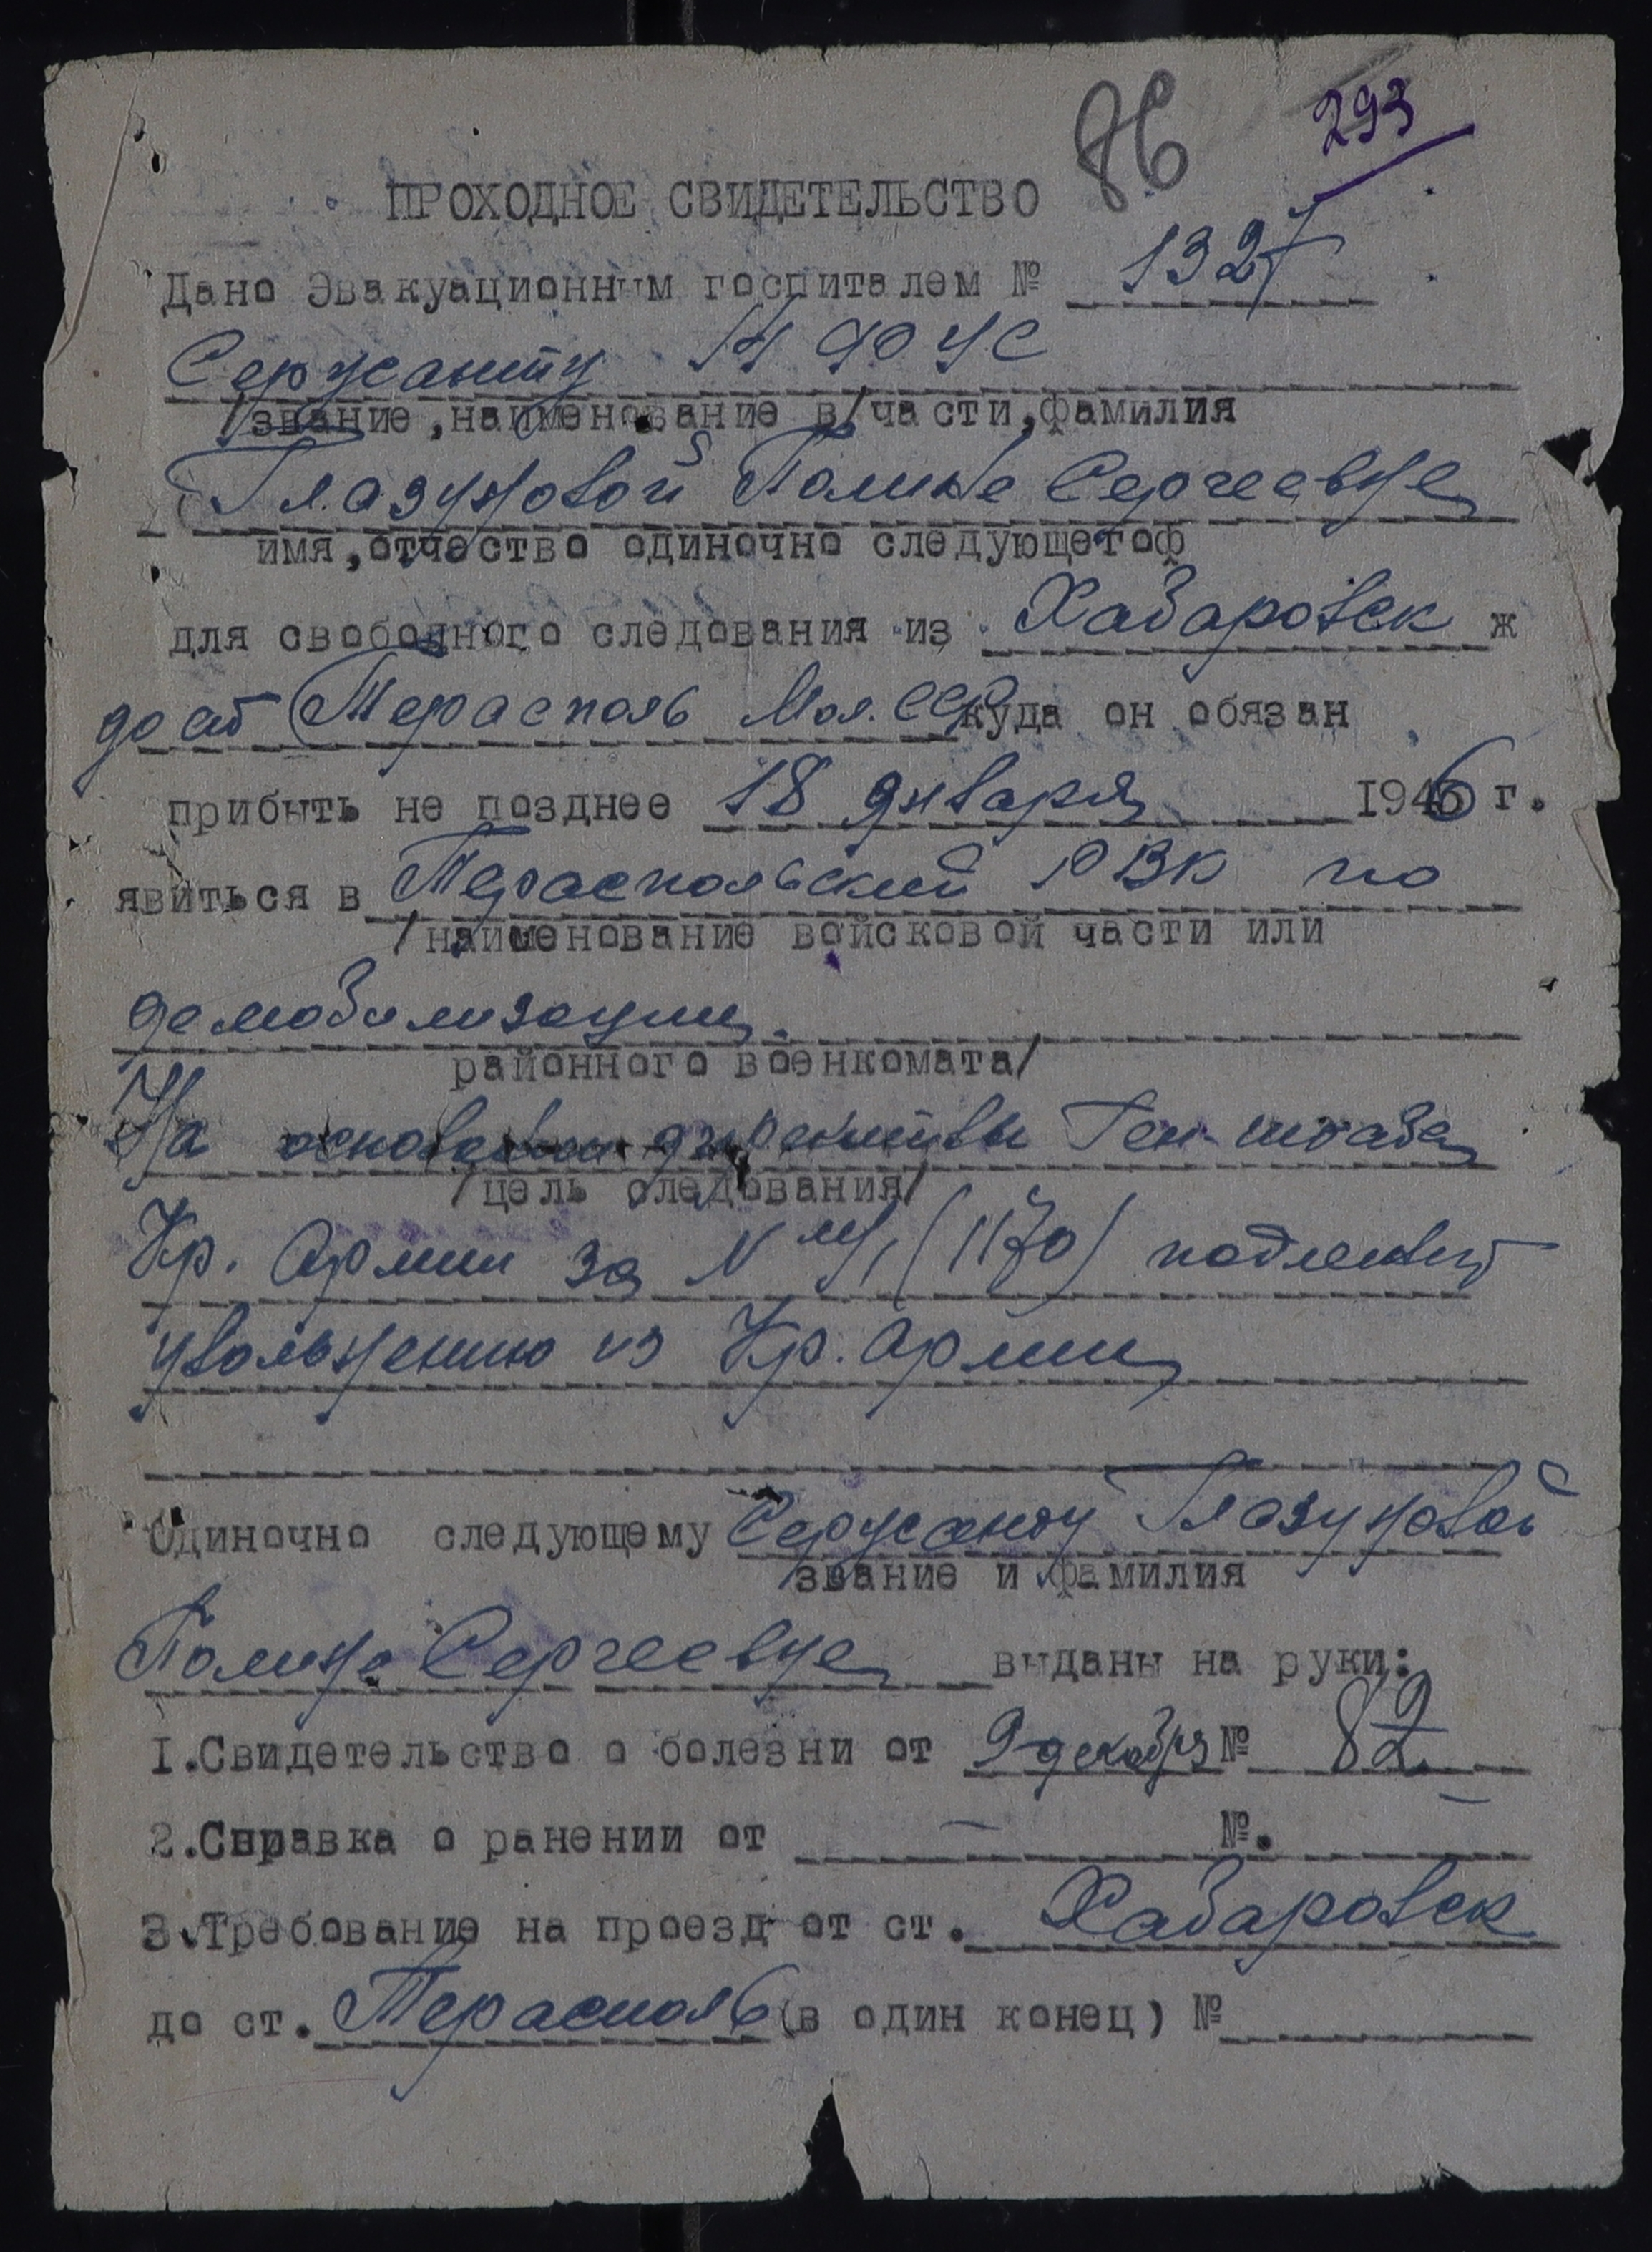 86 293
ПРОХОДНОЕ СВИДЕТЕЛЬСТВО
Дано Эвакуационным госпиталем № 1327
Сержанту
/звание, наименование в/части, фамилия
Глазуновой Полине Сергеевне
имя, отчество одиночно следующегоф
для свободного следования из Хабаровск ж
до ст Терасполь Мол. ССР куда он обязан
прибыть не позднее 18 января 1946 г.
явиться в Тераспольский РВК по
/наименование войсковой части или
демобилизации.
районного военкомата/
На основании директивы Ген-штаба
/цель следования/
Кр. Армии за N (1170) подлежит
увольнению из Кр. Армии
Одиночно следующему Сержанту Глазуновой
звание и фамилия
Полине Сергеевне выданы на руки:
1.Свидетельство о болезни от 9 декабря № 82
2.Справка о ранении от – №. –
3.Требование на проезд от ст. Хабаровск
до ст. Терасполь (в один конец) №